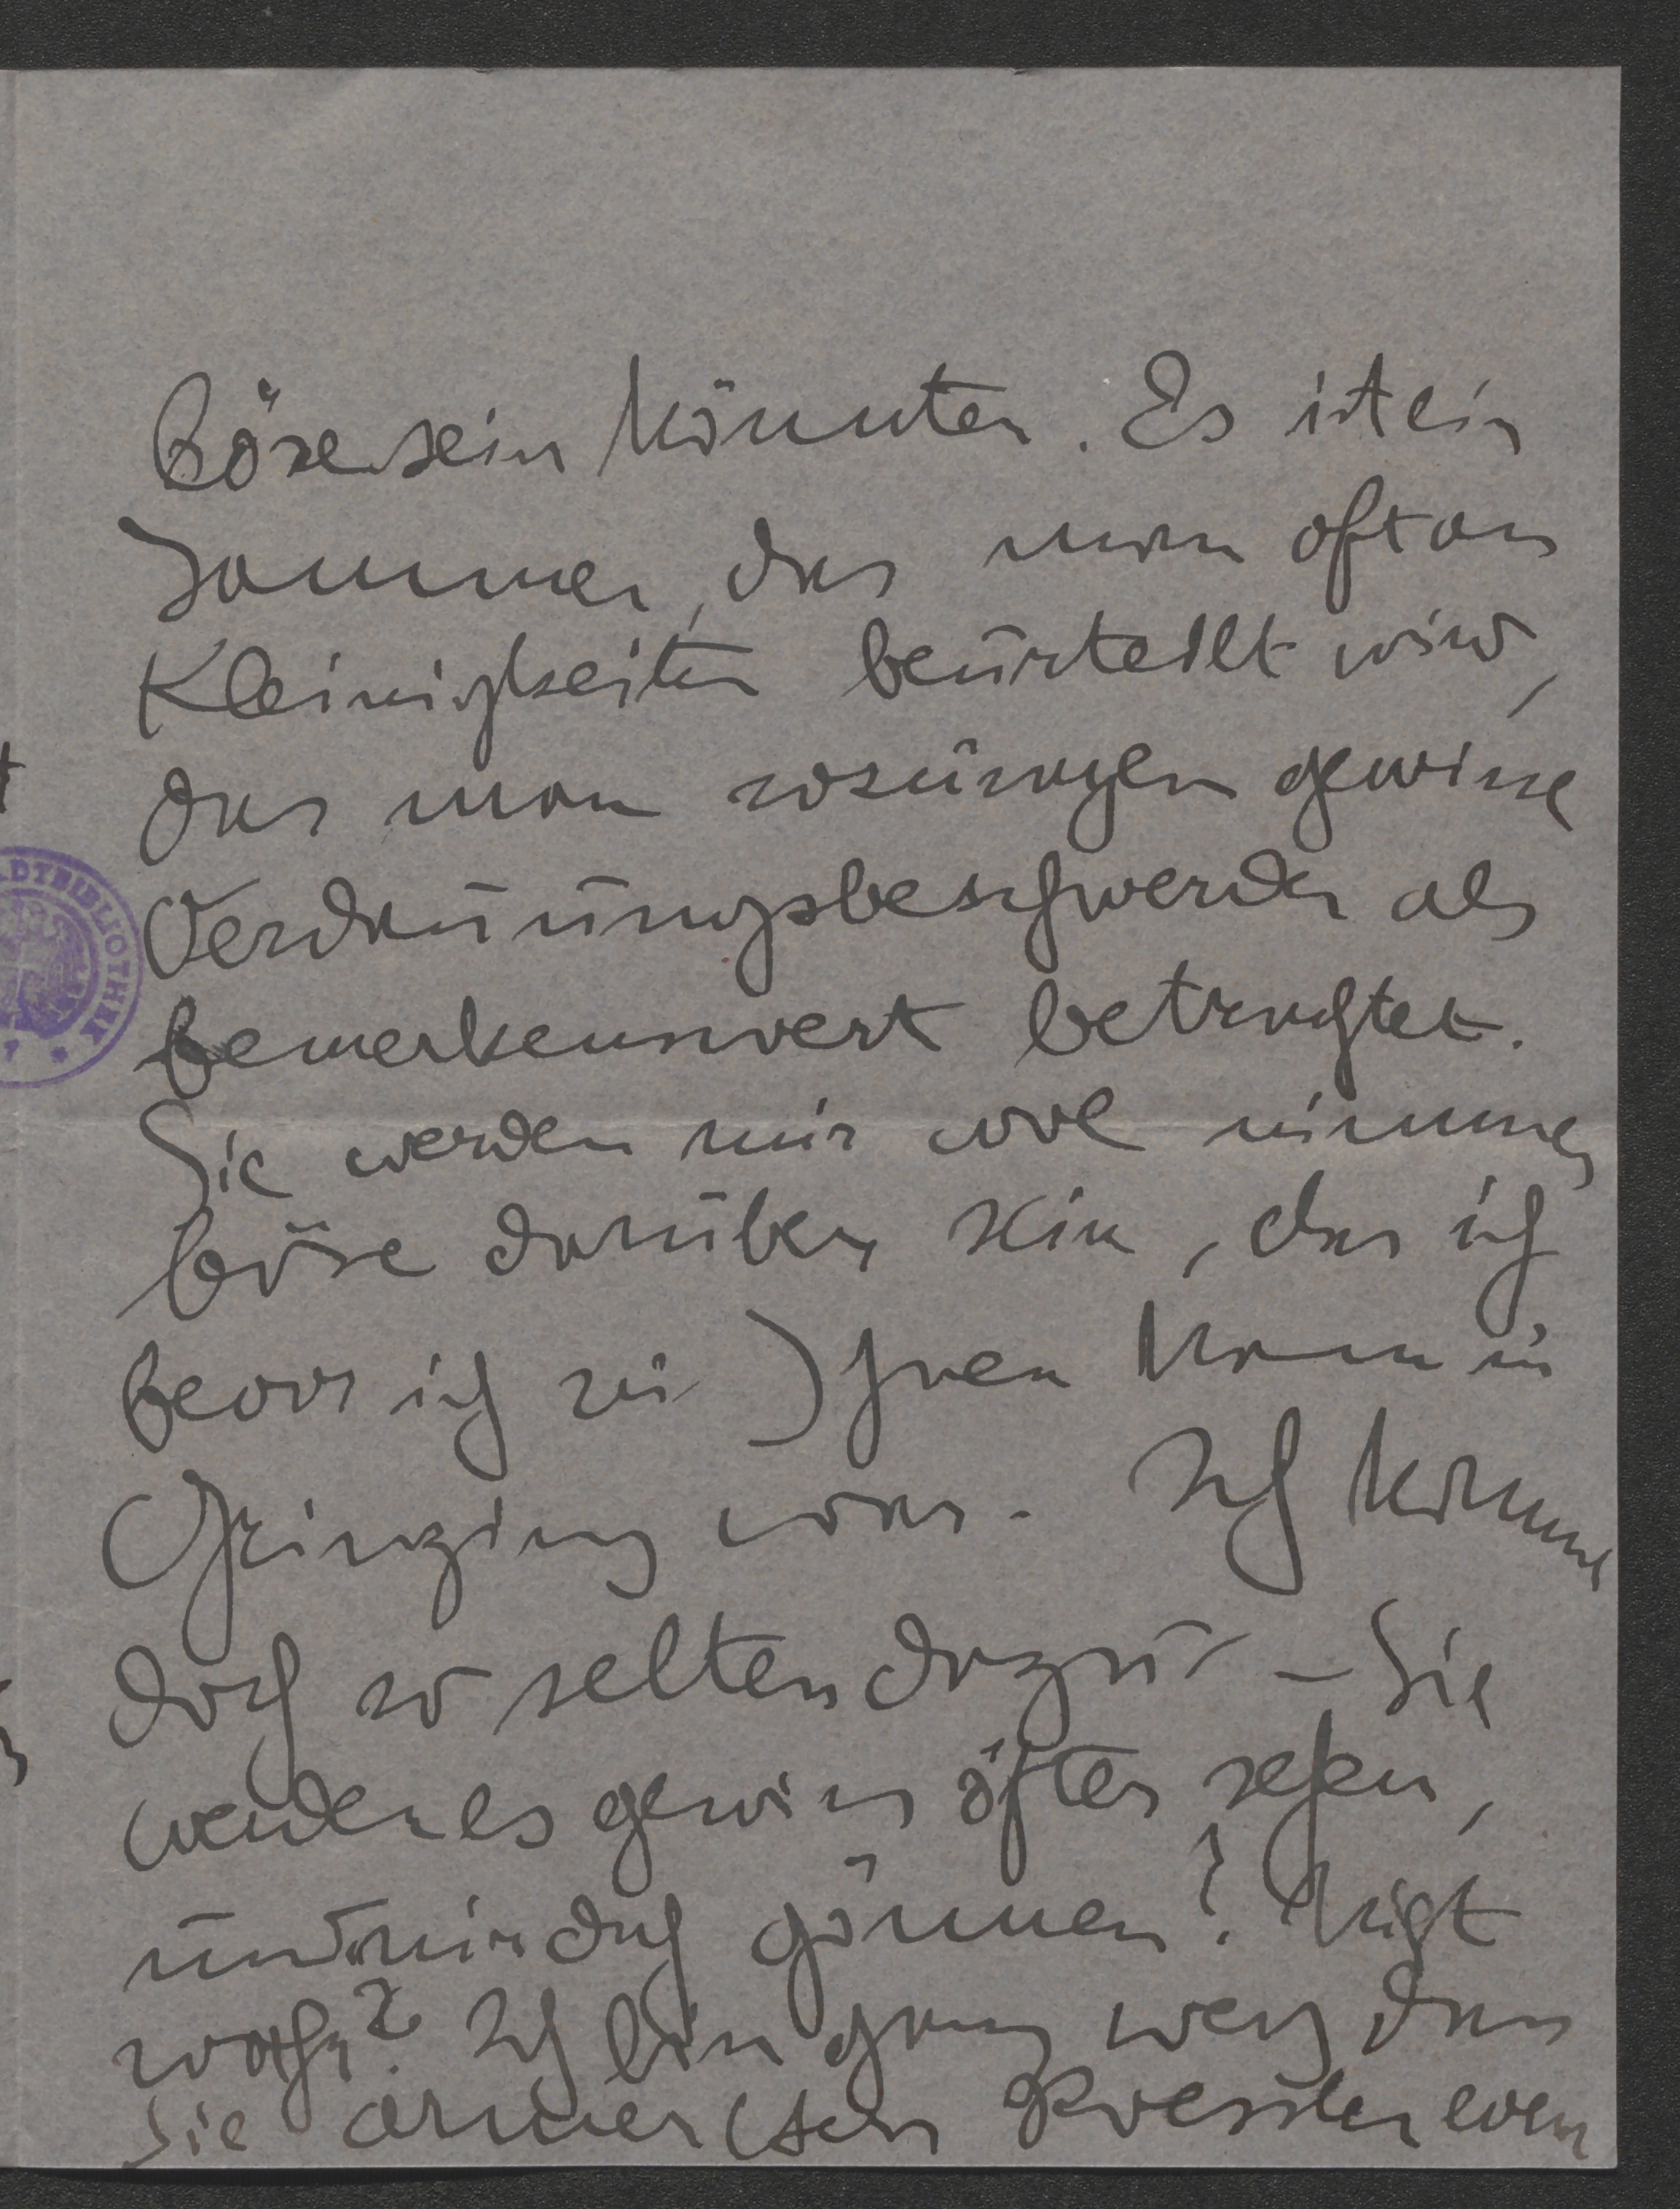 Böse sein könnten. Es ist ein
Jammer, das man oft an
Kleinigkeiten beurteilt wird,
das man sozusagen gewisse
Verdauungsbeschwerden als
bemerkenswert betrachtet.
Sie werden mir wol nimmer
böse darüber sein, das ich
bevor ich zu Ihnen kam in
Grinzing war. Ich komme
doch so selten dazu – Sie
werden es gewiss öfter sehen,
und mir doch gönnen? Nicht
wahr? Ich bin ganz weg das
Sie armer Roessler
DTBIBLIOTHEK